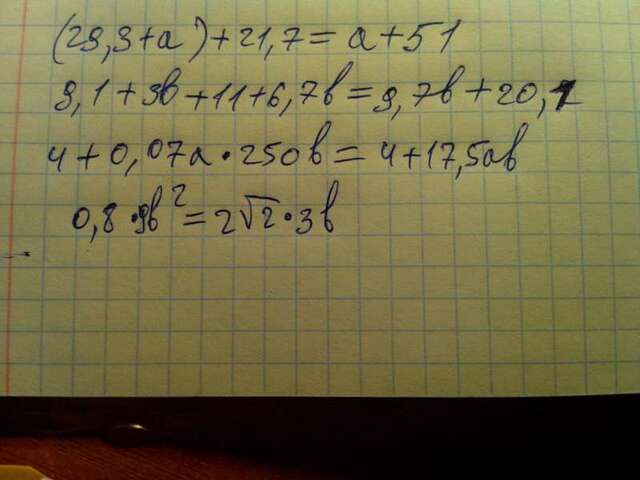 (29,3+а)+21,7=а+51
9,1+3в+11+6,7в=9,7в+20,1
4+0,07а·250в=4+17,5ав
0,8·9в²=2√2·3в